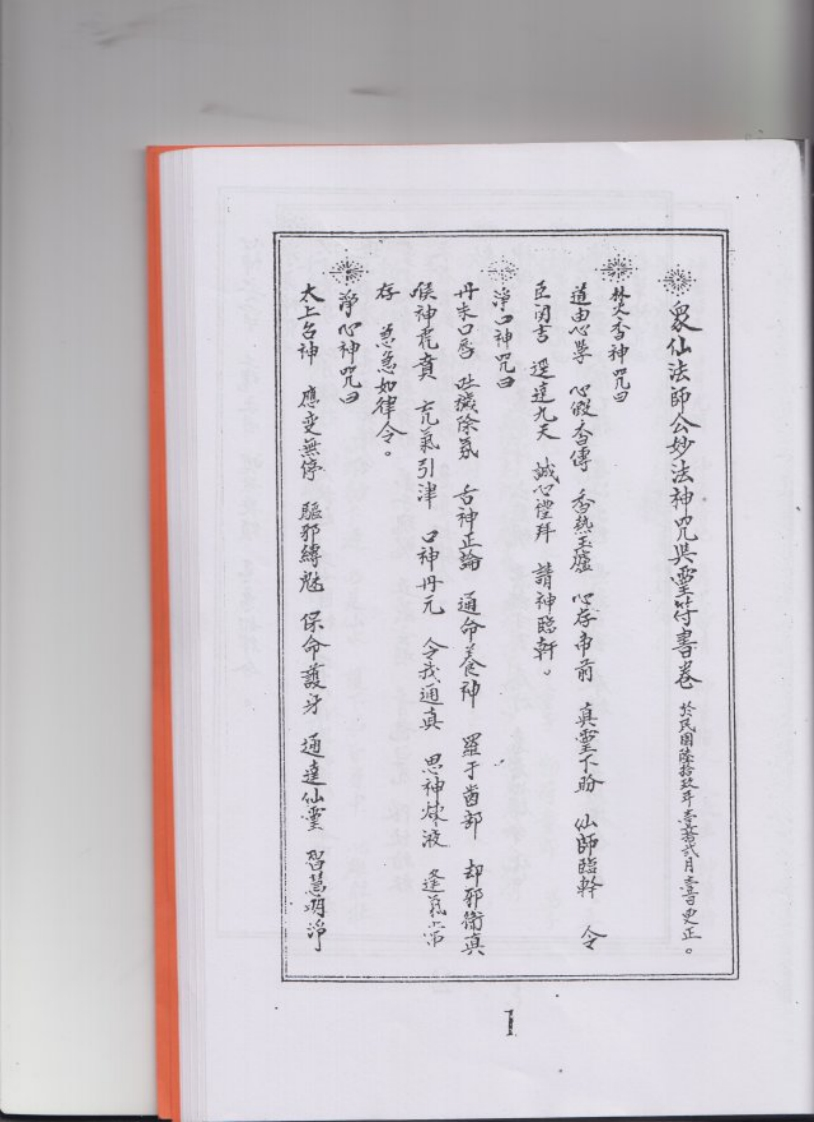 眾仙法師公妙法神咒與靈符書卷 於民國陸拾玖年壹拾弍月壹日更正。
焚香神咒曰
道由心學 心假香傳 香熱玉爐 心存帝前 真靈下盼 仙師臨幹 令
臣関吉 逕達九天 誠心禮拜 請神臨軒。
淨口神咒曰
丹朱口唇 吐穢除氛 舌神正論 通命養神 羅于齒部 却邪衛真
喉神虎賁 炁氣引津 口神丹元 令我通真 思神煉液 逢氣常
存 急急如律令。
淨心神咒曰
太上台神 應变無停 驅邪縛魅 保命護牙 通達仙靈 智慧明淨
1